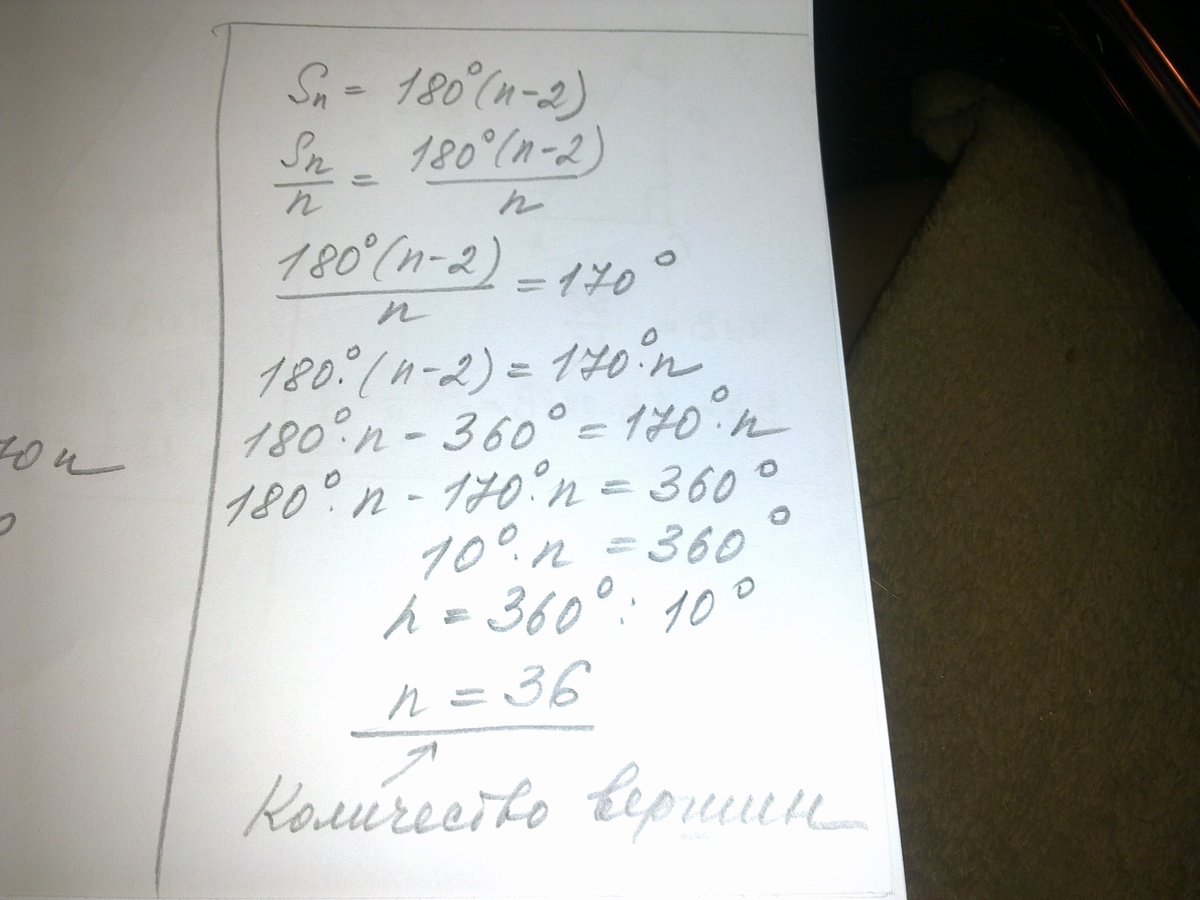 Sn = 180°(n-2)
Sn/n = 180°(n-2)/n
180°(n-2)/n = 170°
180°·(n-2) = 170°·n
180°·n - 360° = 170°·n
180°·n - 170°·n = 360°
10°·n = 360°
n = 360° : 10°
n = 36
↗
Количество вершин